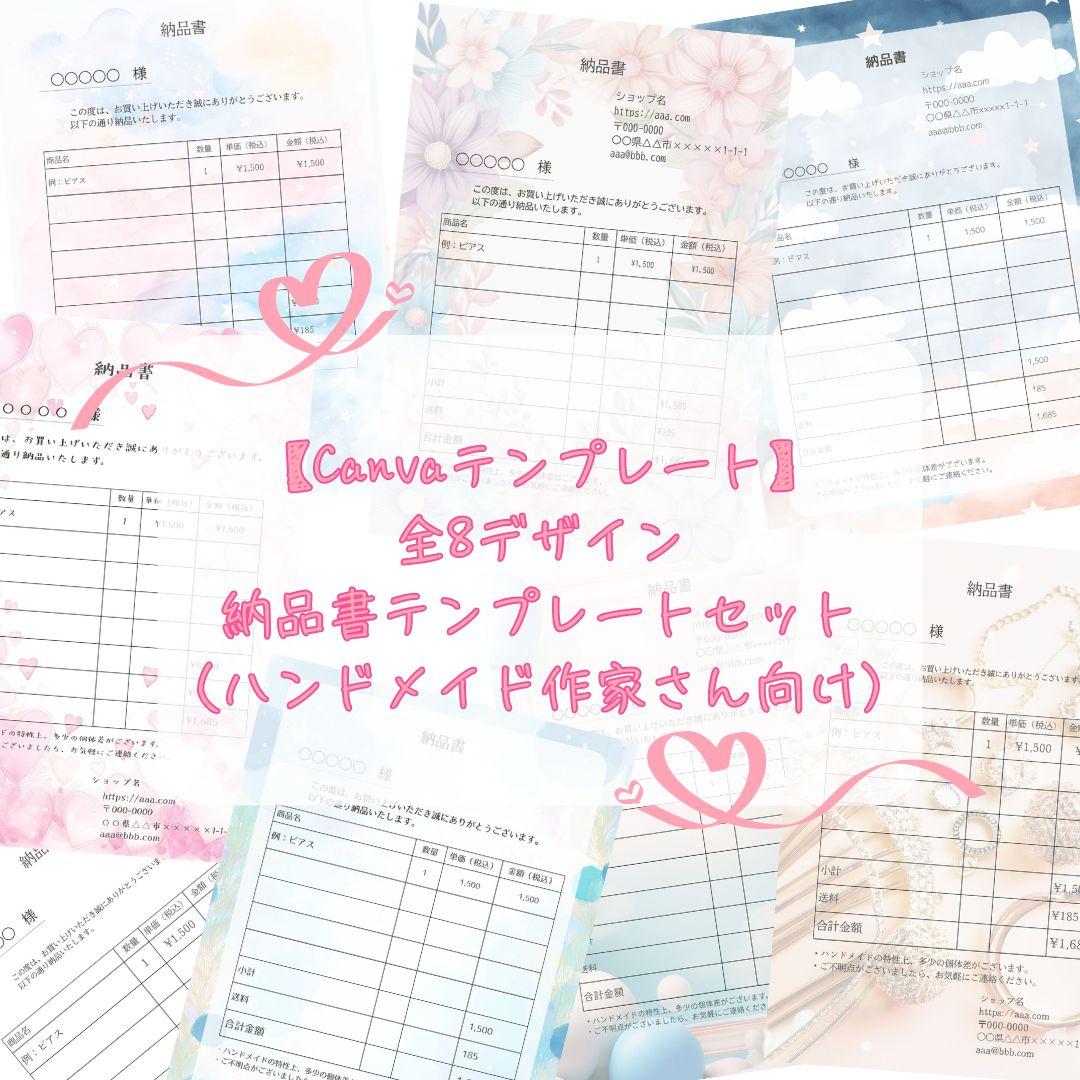 納品書
○○○○○ 様
この度は、お買い上げいただき誠にありがとうございます。
以下の通り納品いたします。
商品名 数量 単価（税込） 金額（税込）
例：ピアス 1 ¥1,500 ¥1,500
¥185
納品書
ショップ名
https://aaa.com
〒000-0000
○○県△△市×××××1-1-1
aaa@bbb.com
○○○○○ 様
この度は、お買い上げいただき誠にありがとうございます。
以下の通り納品いたします。
商品名 数量 単価（税込） 金額（税込）
例：ピアス 1 ¥1,500 ¥1,500
小計 ¥1,500
送料 ¥185
合計金額 ¥1,685
納品書
ショップ名
https://aaa.com
〒000-0000
○○県△△市×××××1-1-1
aaa@bbb.com
○○○○ 様
この度は、お買い上げいただき誠にありがとうございます。
以下の通り納品いたします。
品名 数量 単価（税込） 金額（税込）
例：ピアス 1 1,500 1,500
小計 1,500
送料 185
合計金額 1,685
・ハンドメイドの特性上、多少の個体差がございます。
納品書
○○○○ 様
は、お買い上げいただき誠にありがとうございます。
通り納品いたします。
数量 単価（税込） 金額（税込）
アス 1 ¥1,500 ¥1,500
¥185
¥1,685
ドの特性上、多少の個体差がございます。
ございましたら、お気軽にご連絡ください。
ショップ名
https://aaa.com
〒000-0000
○○県△△市×××××1-1-
aaa@bbb.com
【Canvaテンプレート】
全8デザイン
納品書テンプレートセット
(ハンドメイド作家さん向け)
納品書
〒000-0000
送料
合計金額
・ハンドメイドの特性上、多少の個体差がございます。
・ご不明点がございましたら、お気軽にご連絡くださ
納品書
○○○○○ 様
この度は、お買い上げいただき誠にありがとうございます。
以下の通り納品いたします。
商品名 数量 単価（税込） 金額（税込）
1 ¥1,500
小計 ¥1,50
送料 ¥185
合計金額 ¥1,68
・ハンドメイドの特性上、多少の個体差がございます。
・ご不明点がございましたら、お気軽にご連絡ください。
ショップ名
https://aaa.com
〒000-0000
○○県△△市×××××1
aaa@bbb.com
納品書
○○○○○ 様
この度は、お買い上げいただき誠にありがとうございます。
以下の通り納品いたします。
商品名 数量 単価（税込） 金額（税込）
例：ピアス 1 1,500 1,500
小計 1,500
送料 185
合計金額
・ハンドメイドの特性上、多少の個体差がございます。
・ご不明点がございましたら、お気軽にご連絡
納品
○○ 様
この度は、お買い上げいただき誠にありがとうございま
以下の通り納品いたします。
商品名 数量 単価（税込） 金額（税
例：ピアス 1 ¥1,500